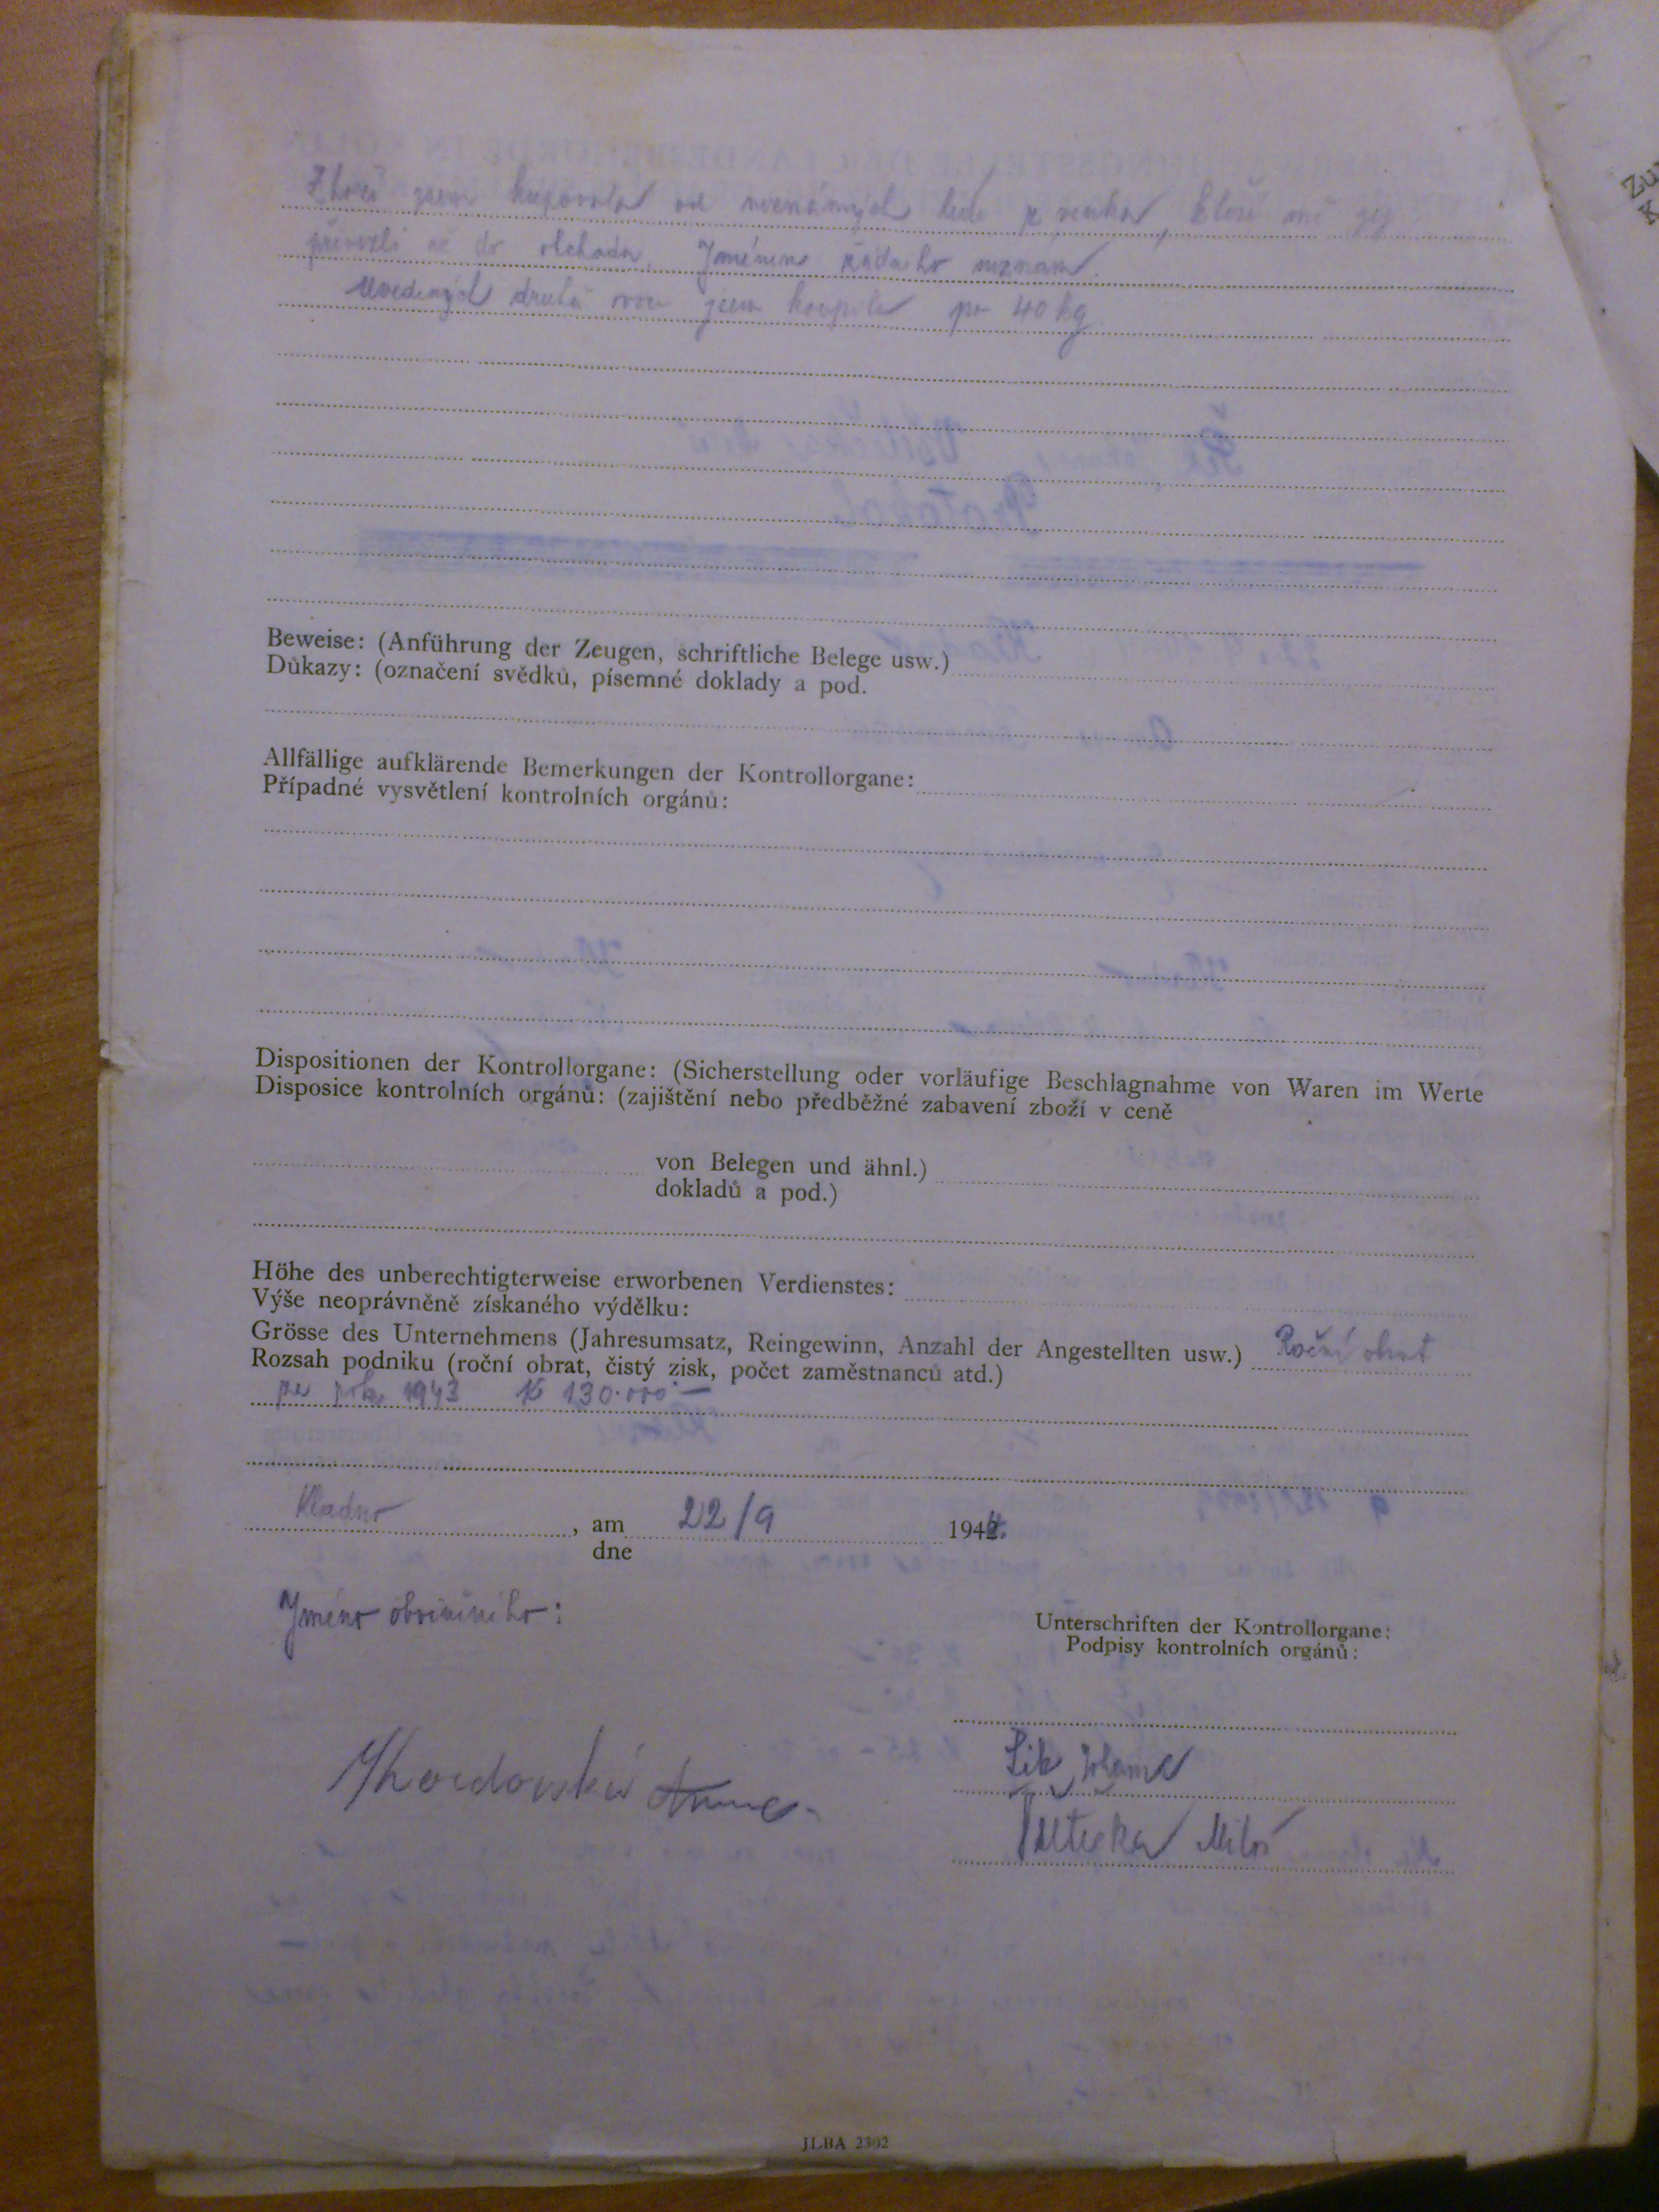 Zboží jsem kupovala od neznámých lidí z venku, kteří mě jej
přivezli až do obchodu. Jménem žádného neznám.
Uvedených druhů ovoce jsem koupila po 40 kg
Beweise: (Anführung der Zeugen, schriftliche Belege usw.)
Důkazy: (označení svědků, písemné doklady a pod.
Allfällige aufklärende Bemerkungen der Kontrollorgane:
Případné vysvětlení kontrolních orgánů:
Dispositionen der Kontrollorgane: (Sicherstellung oder vorläufige Beschlagnahme von Waren im Werte
Disposice kontrolních orgánů: (zajištění nebo předběžné zabavení zboží v ceně
von Belegen und ähnl.)
dokladů a pod.)
Höhe des unberechtigterweise erworbenen Verdienstes:
Výše neoprávněně získaného výdělku:
Grösse des Unternehmens (Jahresumsatz, Reingewinn, Anzahl der Angestellten usw.) Roční obrat
Rozsah podniku (roční obrat, čistý zisk, počet zaměstnanců atd.)
za rok 1943 K 130.000.—
Kladno, am 22/9 1944.
dne
Jméno obviněného:
Unterschriften der Kontrollorgane:
Podpisy kontrolních orgánů:
Anna
Miloš
JLBA 2302